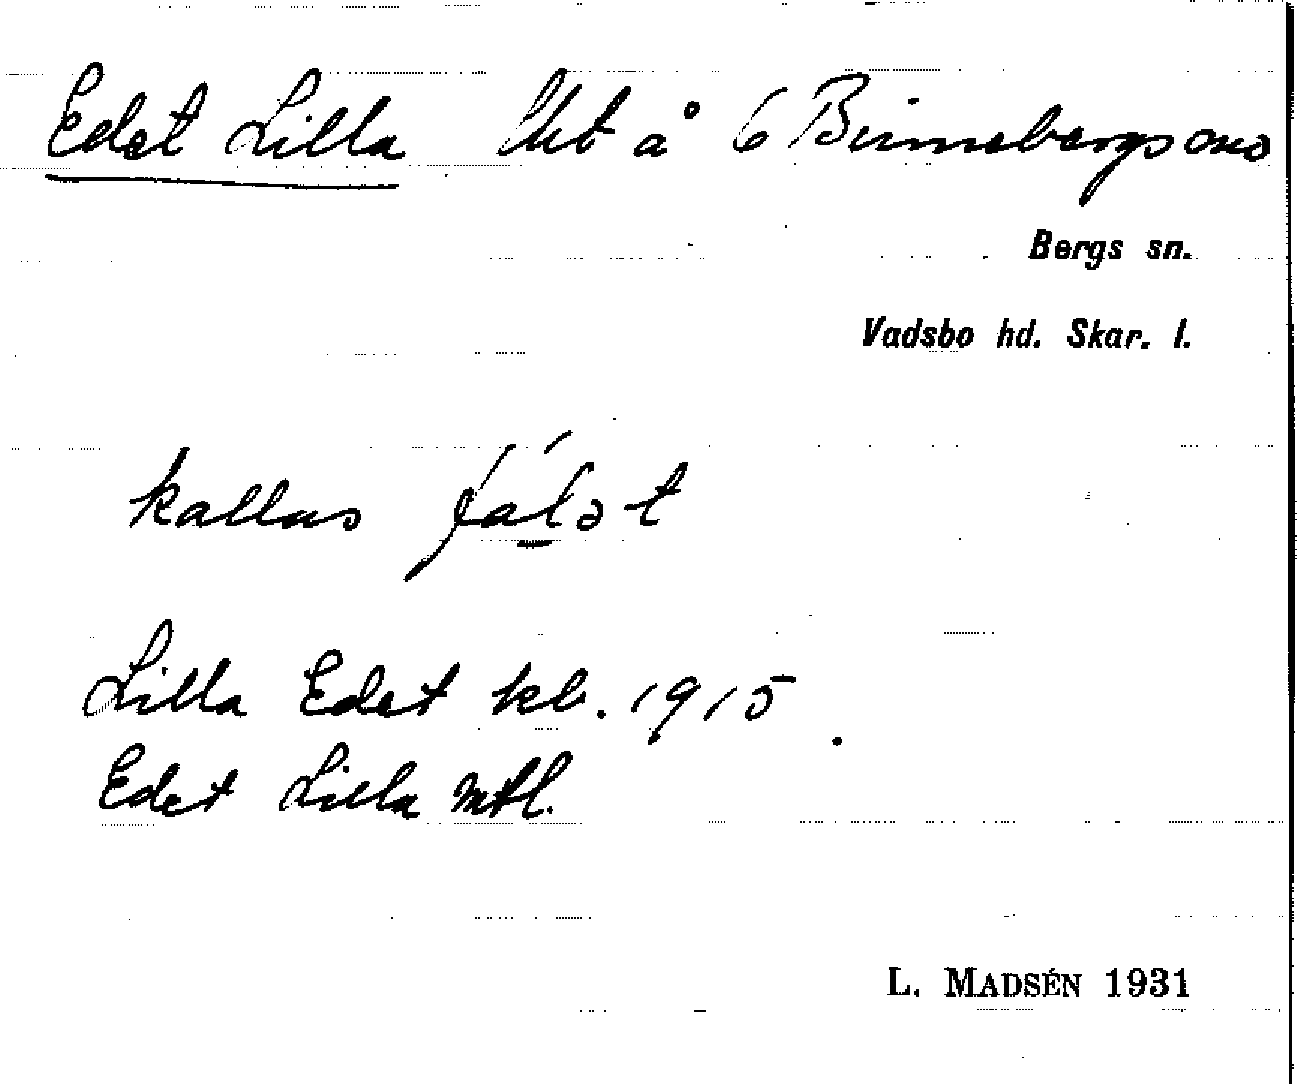 Edet Lilla lht å 6 Binnebergs
Bergs sn.
Vadsbo hd. Skar. l.
kallas
Lilla Edet kb. 1915.
Edet Lilla mtl.
L. MADSÉN 1931